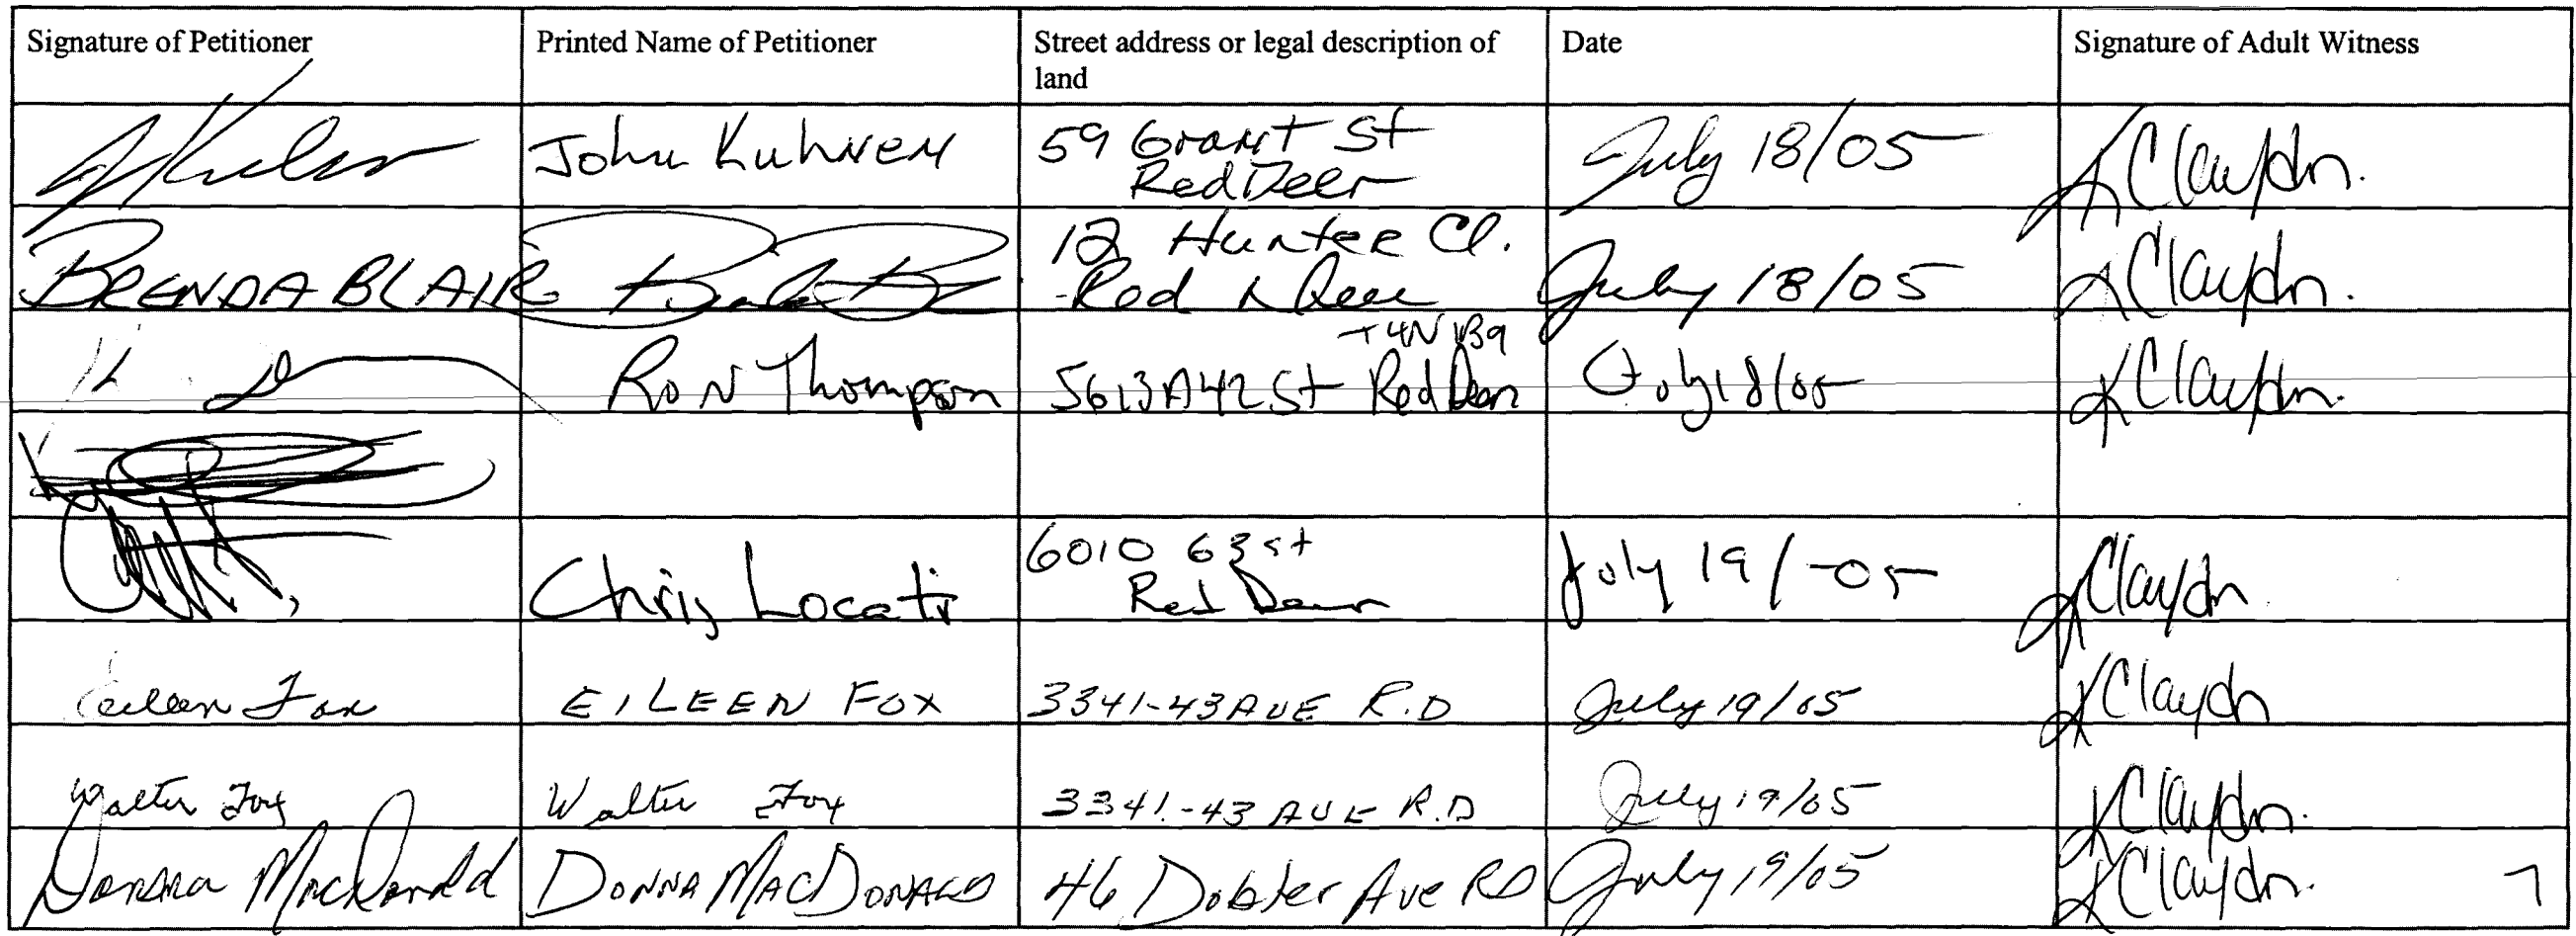 Signature of Petitioner
Printed Name of Petitioner
Street address or legal description of
land
Date
Signature of Adult Witness
John Kuhnen
59 Grant St
Red Deer
July 18/05
Claydn.
BRENDA BLAIR
12 Hunter Cl.
Red Deer
July 18/05
Claydn.
Ron Thompson
T4N 1B9
5613A 42 St Red Deer
July 18/05
KClaydn.
Chris Locati
6010 63 st
Red Deer
July 19/-05
Claydn
Eileen Fox
EILEEN FOX
3341-43 AVE R.D
July 19/05
KClaydn
Walter Fox
Walter Fox
3341-43 AVE R.D
July 19/05
KClaydn.
Donna MacDonald
DONNA MACDONALD
46 Dobler Ave RD
July 19/05
KClaydn.
7